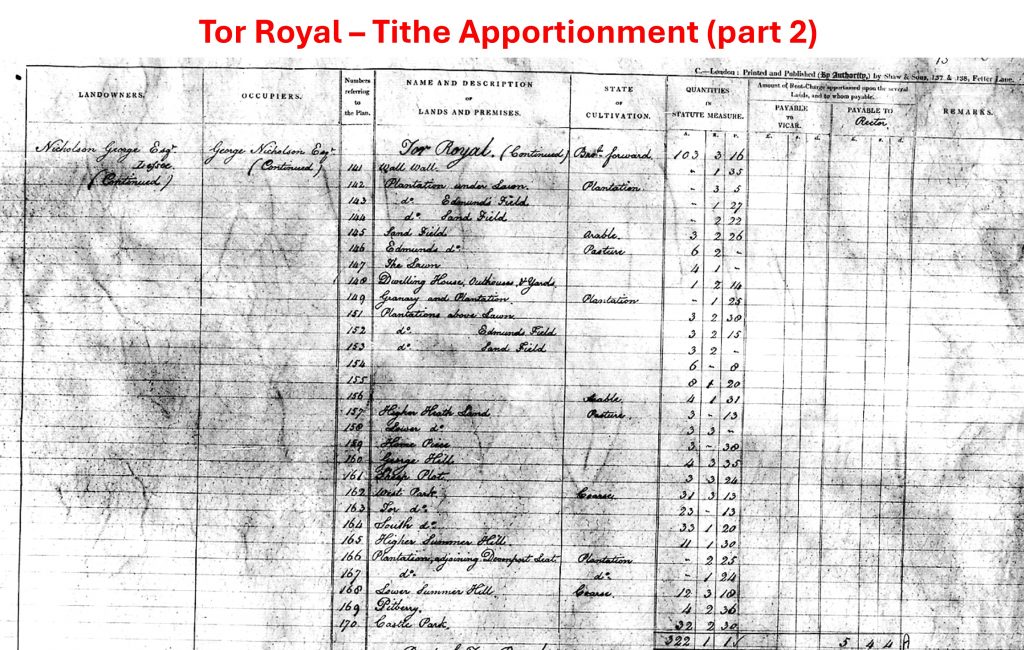 Tor Royal – Tithe Apportionment (part 2)
C.—London: Printed and Published (By Authority,) by Shaw & Sons, 137 & 138, Fetter Lane.
LANDOWNERS. OCCUPIERS. Numbers referring to the Plan. NAME AND DESCRIPTION OF LANDS AND PREMISES. STATE OF CULTIVATION. QUANTITIES IN STATUTE MEASURE. Amount of Rent-Charge apportioned upon the several Lands, and to whom payable. PAYABLE TO VICAR. PAYABLE TO Rector. REMARKS.
A. R. P. £. s. d. £. s. d.
Nicholson George Esqr George Nicholson Esqr Tor Royal. (Continued) Brot forward 103 3 16
Lessee (Continued) 141 Wall Wall - 1 35
(Continued) 142 Plantation under Lawn. Plantation - 3 5
143 do Edmunds Field - 1 27
144 do Sand Field - 2 22
145 Sand Field Arable 3 2 26
146 Edmunds do Pasture 6 2 -
147 The Lawn 4 1 -
148 Dwelling House, Outhouses, & Yards 1 2 14
149 Granary and Plantation. Plantation - 1 25
151 Plantations above Lawn 3 2 30
152 do Edmunds Field 3 2 15
153 do Sand Field 3 2 -
154 6 - 8
155 8 1 20
156 Arable 4 1 31
157 Higher Heath Land Pasture. 3 - 13
158 Lower do 3 3 -
159 Home Piece 3 - 38
160 George Hill 4 3 35
161 Sheep Plot. 3 3 24
162 West Park Coarse 31 3 13
163 Tor do 23 - 13
164 South do 33 1 20
165 Higher Summer Hill 11 1 30
166 Plantation, adjoining Devonport Leat. Plantation - 2 25
167 do do - 1 24
168 Lower Summer Hill Coarse 12 3 18
169 Pitberry. 4 2 36
170 Castle Park. 32 2 30
322 1 1 5 4 4